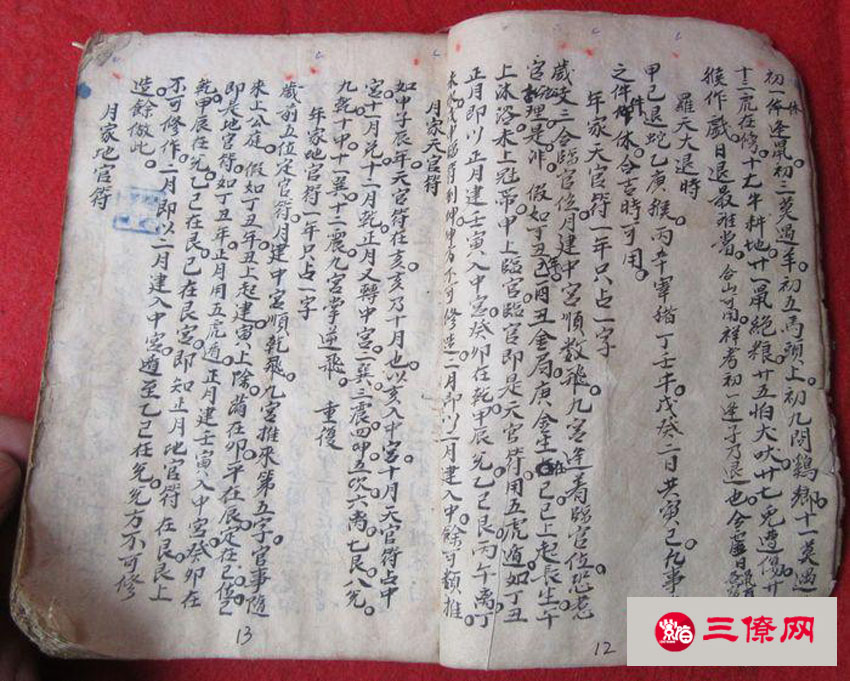 初一休逢鼠初三莫遇羊初五馬頭上初九問鷄鄉十一莫遇
十三虎在傍十七牛耕地廿一鼠絕粮廿五怕犬吠廿七兎遭傷廿
猴作戲日退最难當
羅天大退時
甲己退蛇乙庚猴丙辛 猪丁壬 戊癸二日共 己九事
之件 休合吉時可用
年家天官符一年只占一字
歲支三合臨官位月建中宮順数飛九宮逢着臨官位恐惹
官 理是非假如丁丑年 酉丑金局庚金生在巳巳上起長生午
上沐浴未上冠帶申上臨官臨官即是天官符用五虎遁如丁丑
正月即以正月建壬寅入中宮癸卯在乾甲辰兌乙巳艮丙午离丁
未 戊申 方不可修造二月即以二月建入中餘可類推
月家天官符
如甲子辰年天官符在亥亥乃十月也以亥入中宮十月天官符占中
宮十一月兌十二月乾正月又轉中宮二巽三震四坤五坎六离七艮八兌
九乾十中十一巽十二震九宮掌逆飛 重復
年家地官符一年只占一字
歲前五位定官符月建中宮順乾飛九宮推來第五字官事随
來上公庭假如丁丑年丑上起建寅上除滿在卯平在辰定在巳位巳
即是地官符如丁丑年正月用五虎遁正月建壬寅入中宮癸卯在
乾甲辰在兌乙巳在艮巳在艮宮即知正月地官符在艮艮上
不可修作二月即以二月建入中宮遁至乙巳在兌兌方不可修
造餘倣此
月家地官符
12
13
三僚网